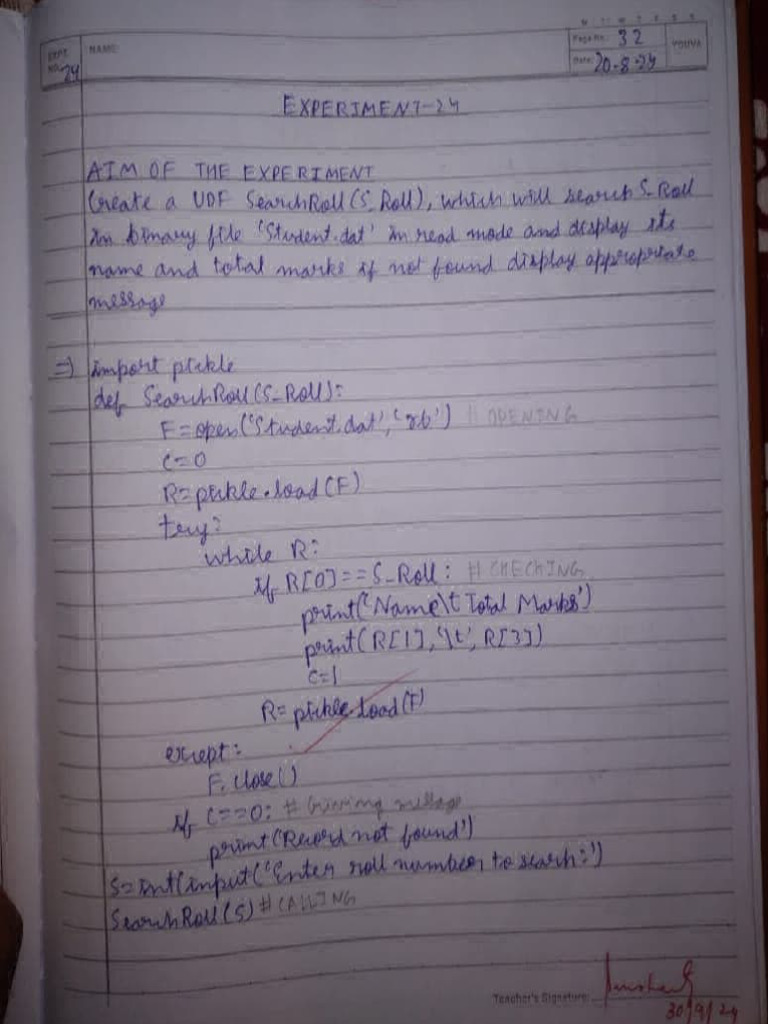 M T W T F S S
EXPT. NO. 24 NAME: Page No. 32 YOUVA
Date: 20-8-24
EXPERIMENT-24
AIM OF THE EXPERIMENT
Create a UDF SearchRoll(S_Roll), which will search S_Roll
in binary file 'Student.dat' in read mode and display its
name and total marks if not found display appropriate
message
=> import pickle
def SearchRoll(S_Roll):
F=open('Student.dat','rb') # OPENING
C=0
R=pickle.load(F)
try:
while R:
if R[0]==S_Roll: # CHECKING
print('Name\t Total Marks')
print(R[1],'\t',R[3])
C=1
R=pickle.load(F)
except:
F.close()
if C==0: # Giving message
print('Record not found')
S=int(input('Enter roll number to search:')
SearchRoll(S) # CALLING
Teacher's Signature:
30/9/24